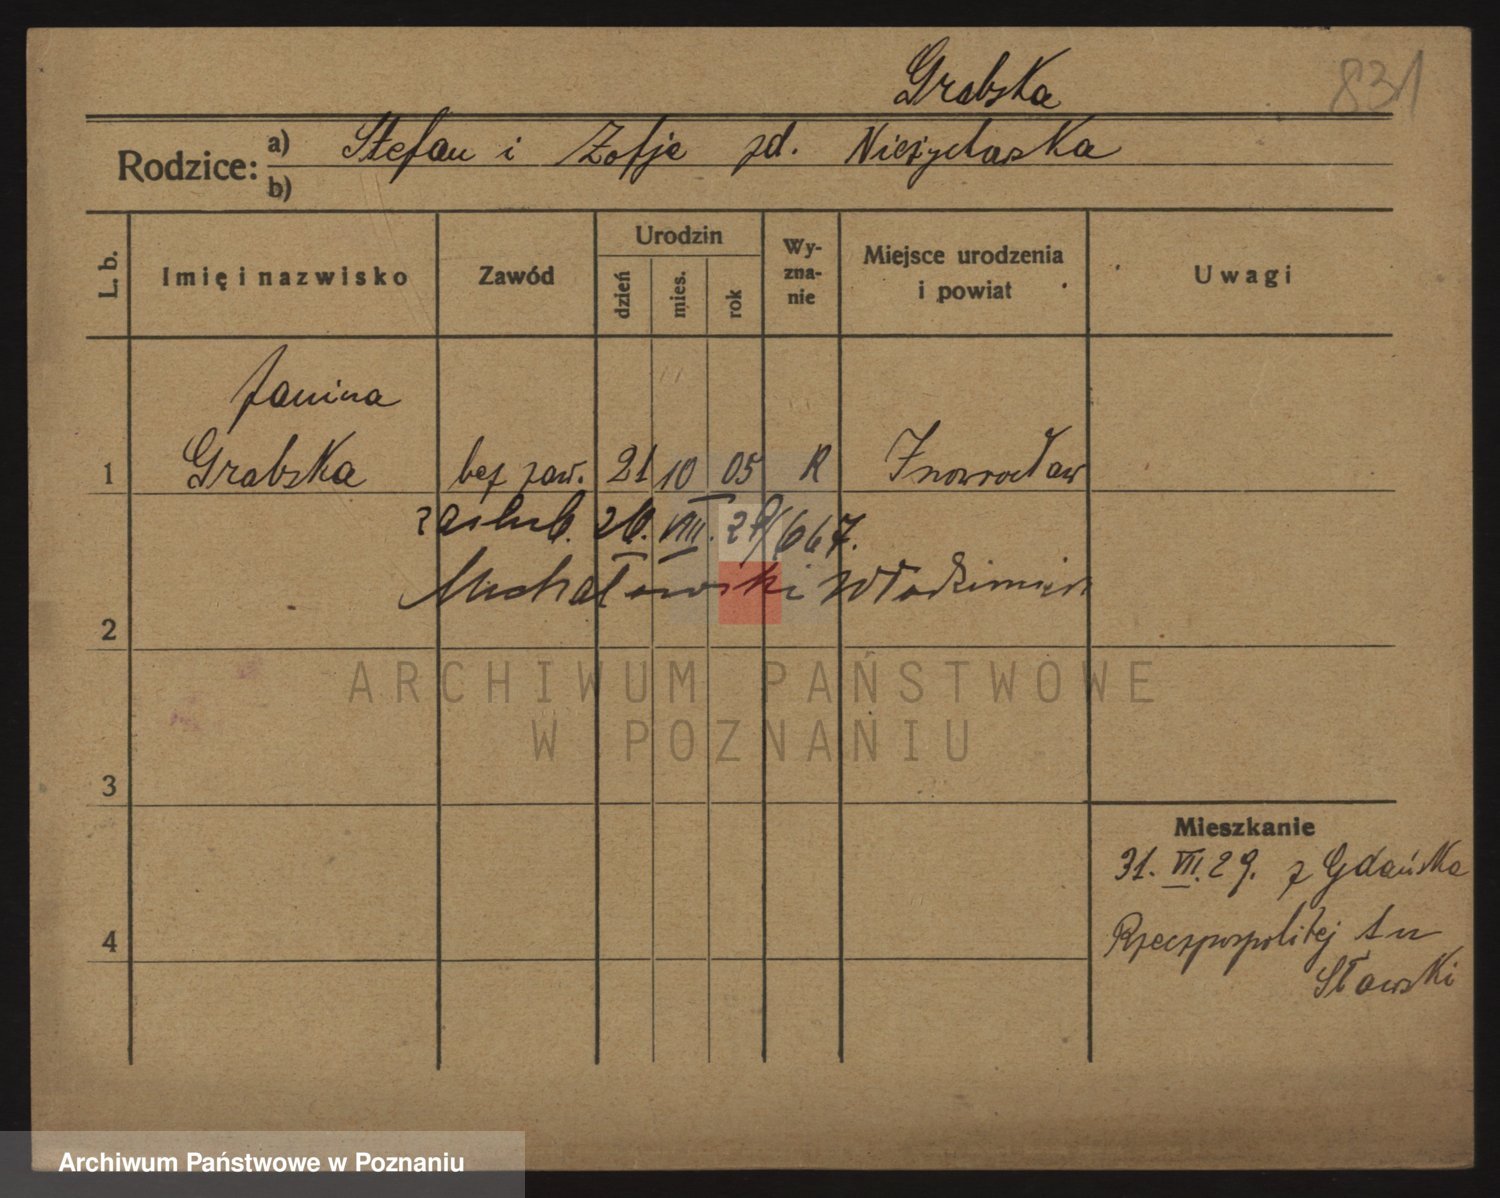 Grabska
831
Rodzice: a) Stefan i Zofje zd. Nieżychaska
b)
L. b.
Imię i nazwisko
Zawód
Urodzin
dzień
mies.
rok
Wy-
zna-
nie
Miejsce urodzenia
i powiat
Uwagi
Janina
1 Grabska bez zaw. 21 10 05 R Inowrocław
zaślub. 26. VIII. 29/667.
Michałowski Włodzimierz
2
ARCHIWUM PAŃSTWOWE
W POZNANIU
3
Mieszkanie
31. VII. 29. z Gdańska
4 Rzeczpospolitej 1 u
Sławski
Archiwum Państwowe w Poznaniu